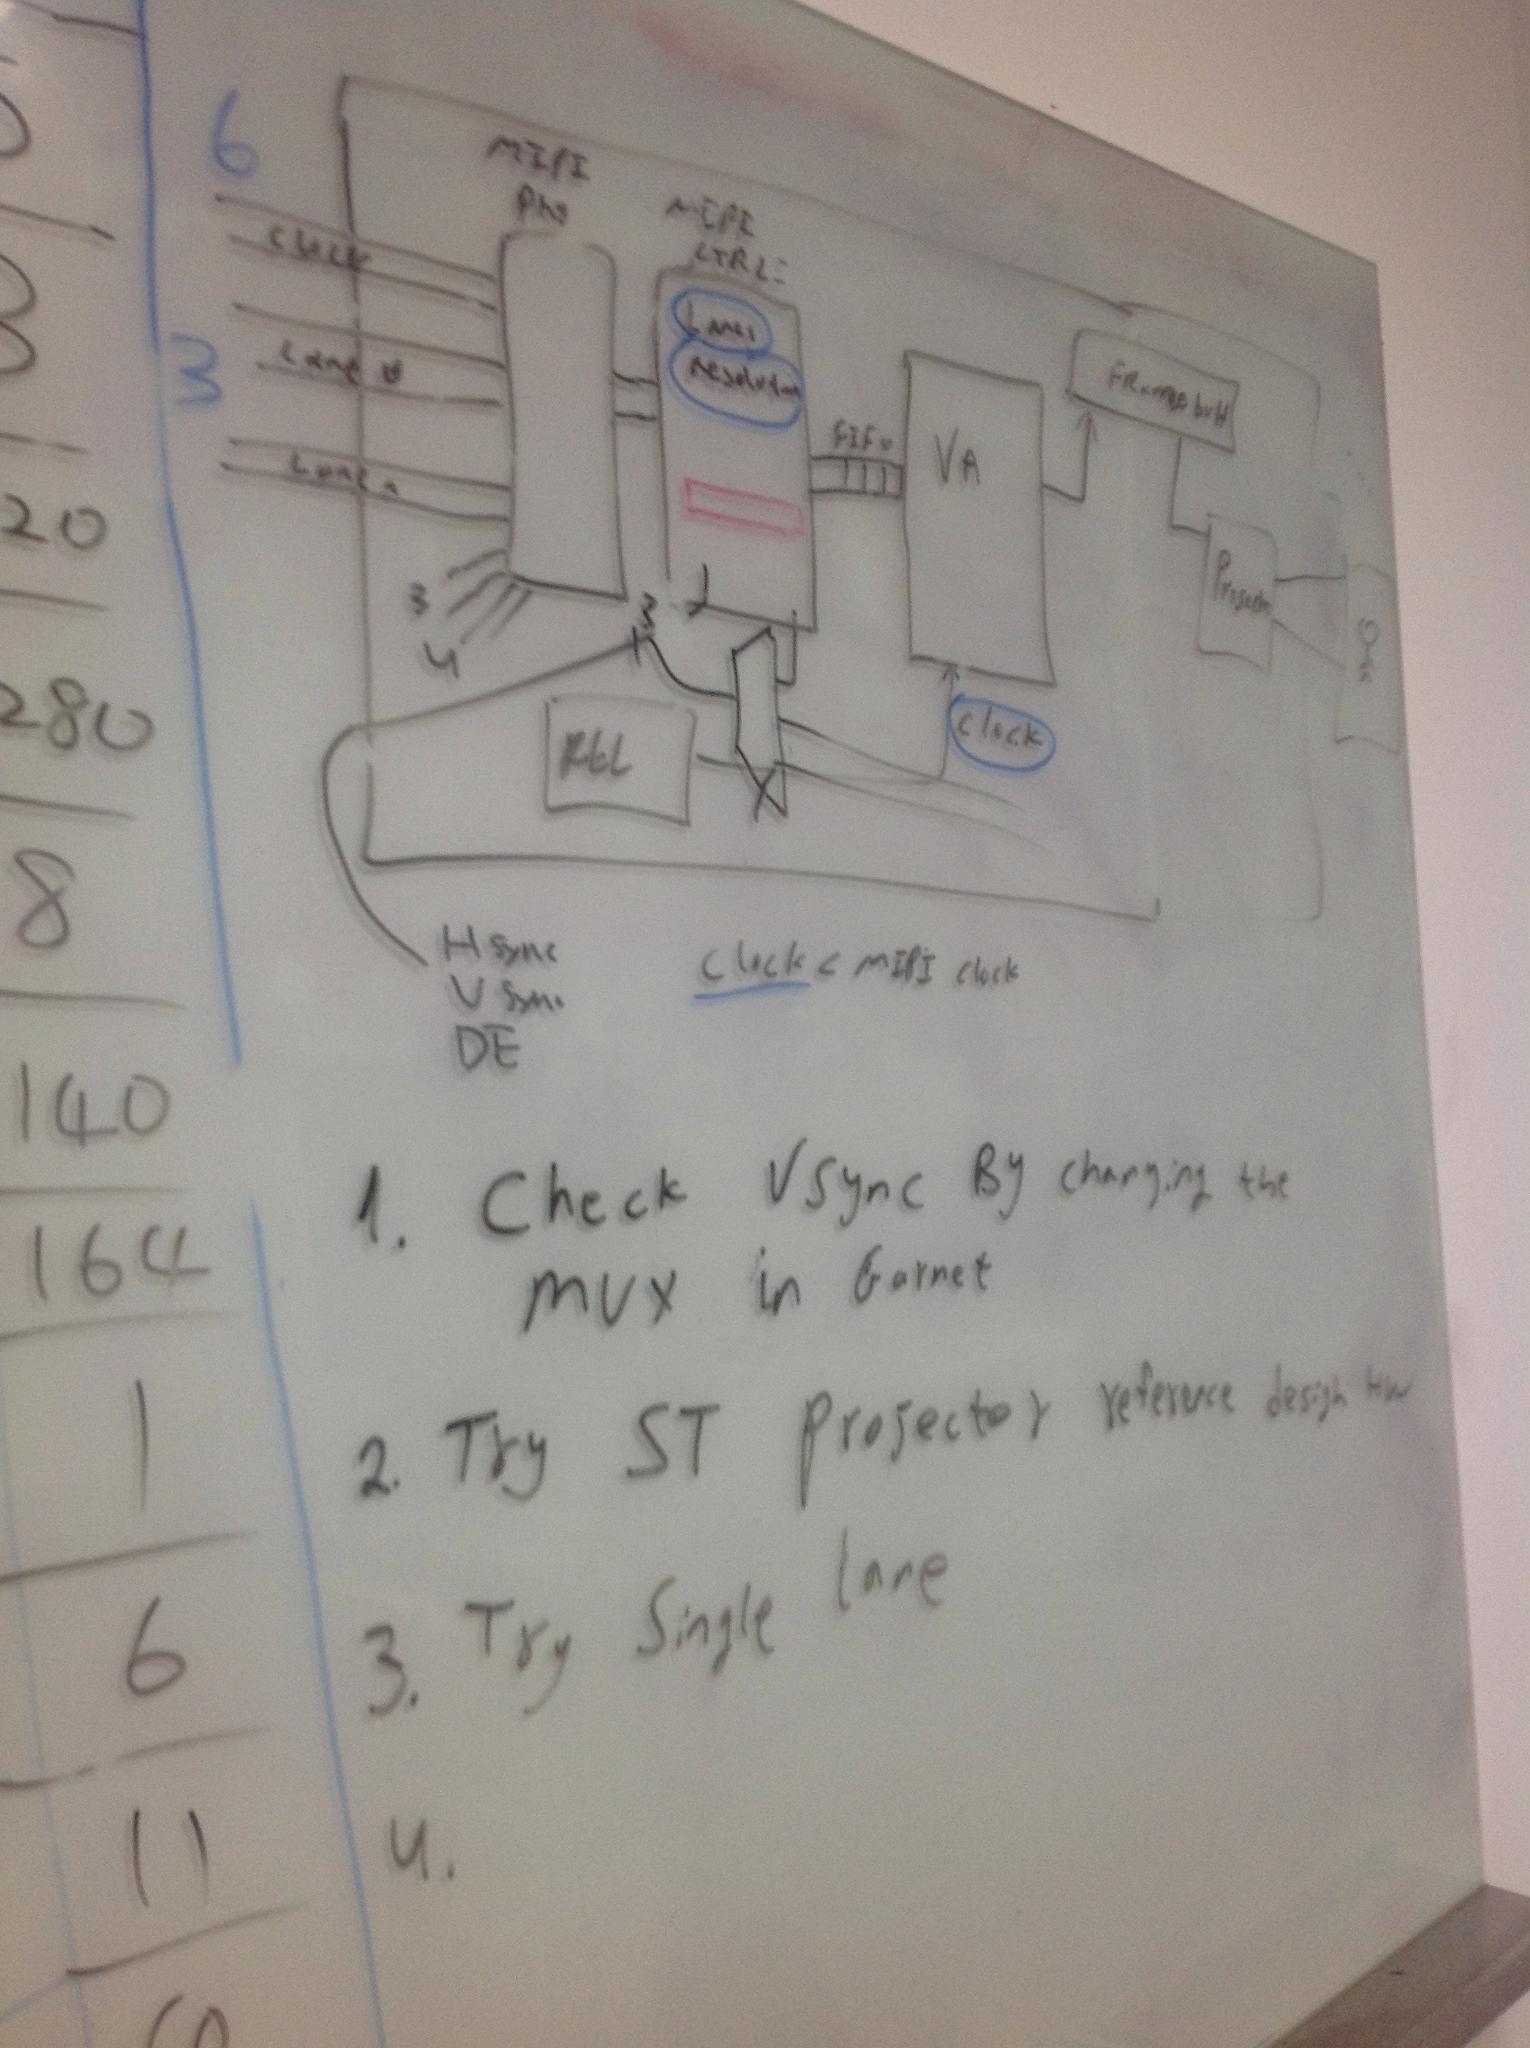 20
280
8
140
164
1
6
11
6
3
MIPI
MIPI
CTRL
Clock
Lane 0
Lane
Lanes
Resolution
FIFO
VA
3
4
3
clock
H sync
V sync
DE
Clock < MIPI clock
1. Check VSync By changing the
mux in Garnet
2. Try ST Projector reference design HW
3. Try Single lane
4.